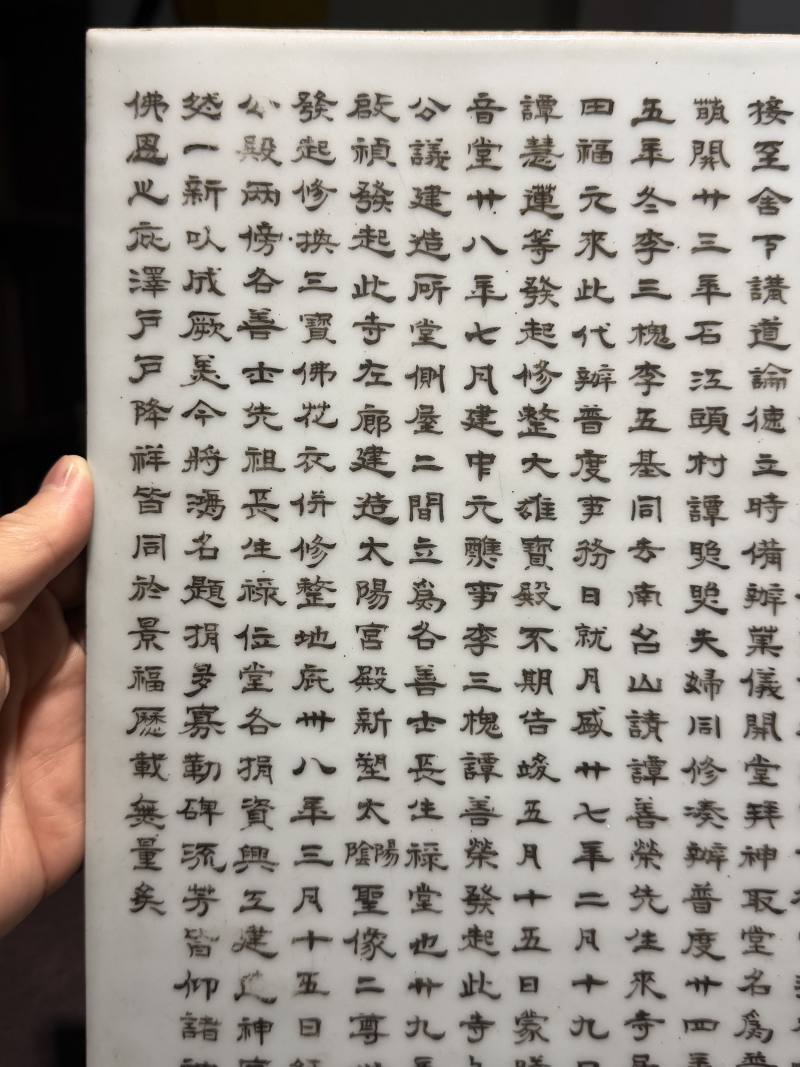 接至舍下講道論德立時備辦菓儀開堂拜神取堂名爲普
萌開廿三年石江頭村譚晃晃夫婦同修凑辦普度廿四年
五年冬李三槐李五基同去南台山請譚善榮先生來寺
田福元來此代辦普度事務日就月盛廿七年二月十九日
譚慧蓮等發起修整大雄寶殿不期告竣五月十五日蒙
音堂廿八年七月建中元醮事李三槐譚善榮發起此寺
公議建造所堂側屋二間立爲各善士長生祿堂也廿九年
啟禎發起此寺左廊建造太陽宮殿新塑太陰陽聖像二尊
發起修換三寶佛花衣併修整地庑卅八年三月十五日
公殿兩傍各善士先祖長生祿位堂各捐資興工建造神
然一新以成厥美今將芳名題捐多寡勒碑流芳皆仰諸
佛恩之庇澤戶戶降祥皆同於景福歷載無量矣